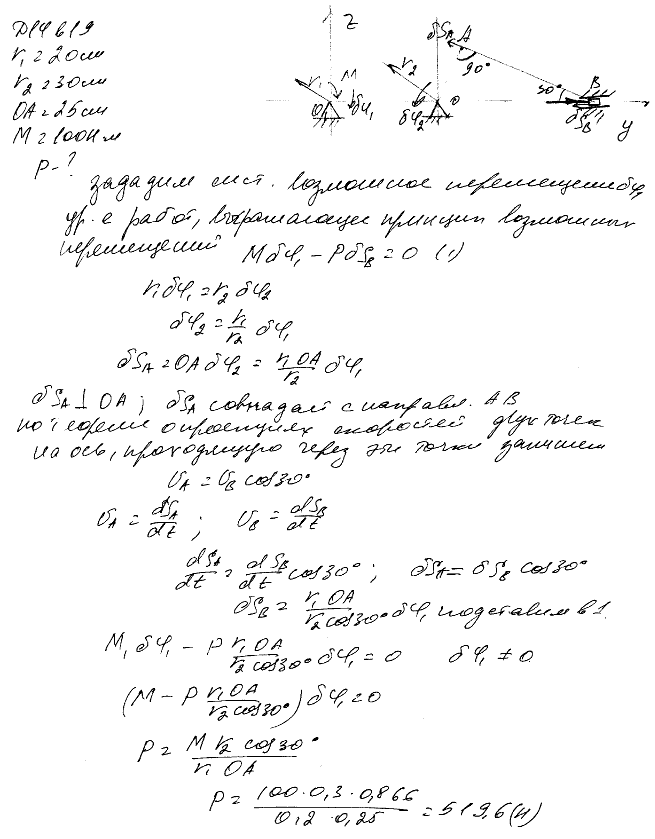 Д14 в19
r₁ = 20 см
r₂ = 30 см
OA = 25 см
M = 100 Нм
P - ?
Z
δS_A A
90°
r₁
M
δφ₁
r₂
δφ₂
O
30°
B
δS_B
y
зададим сист. возможное перемещение δφ₁
ур-е работ, выражающее принцип возможных
перемещений Mδφ₁ - PδS_B = 0 (1)
r₁δφ₁ = r₂δφ₂
δφ₂ = r₁/r₂ δφ₁
δS_A = OA δφ₂ = r₁OA/r₂ δφ₁
δS_A ⊥ OA; δS_A совпадает с направл. AB
по теореме о проекциях скоростей двух точек
на ось, проходящую через эти точки запишем
υ_A = υ_B cos30°
υ_A = dS_A/dt ; υ_B = dS_B/dt
dS_A/dt = dS_B/dt cos30° ; δS_A = δS_B cos30°
δS_B = r₁OA/r₂cos30° δφ₁ подставим в 1.
M₁δφ₁ - P r₁OA/r₂cos30° δφ₁ = 0 δφ₁ ≠ 0
(M - P r₁OA/r₂cos30°) δφ₁ = 0
P = M r₂ cos30°/r₁ OA
P = 100·0,3·0,866/0,2·0,25 = 519,6 (Н)